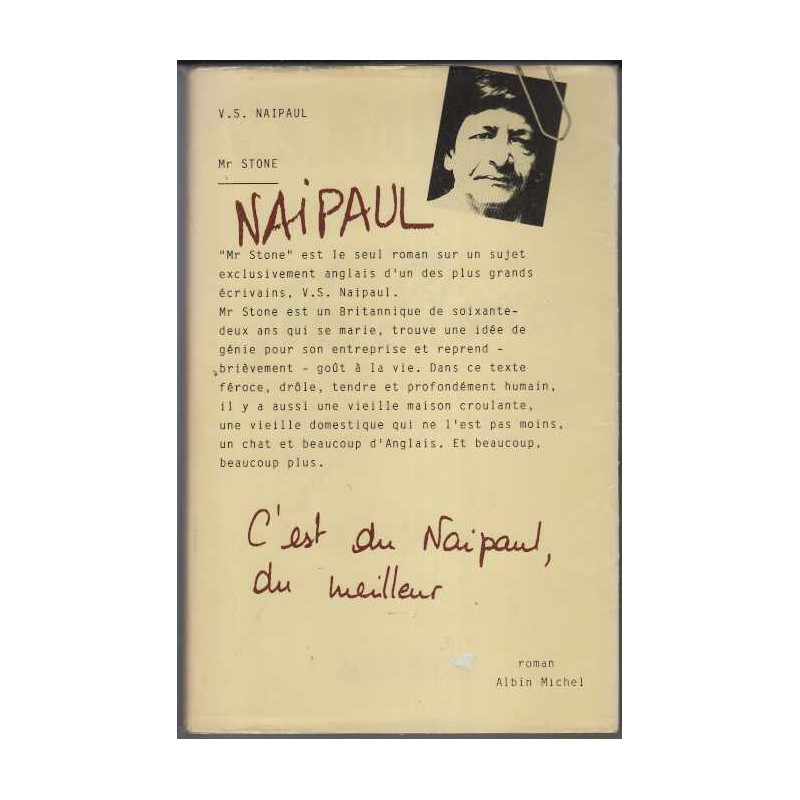 V.S. NAIPAUL
Mr STONE
NAiPAUL
"Mr Stone" est le seul roman sur un sujet
exclusivement anglais d'un des plus grands
écrivains, V.S. Naipaul.
Mr Stone est un Britannique de soixante-
deux ans qui se marie, trouve une idée de
génie pour son entreprise et reprend -
brièvement - goût à la vie. Dans ce texte
féroce, drôle, tendre et profondément humain,
il y a aussi une vieille maison croulante,
une vieille domestique qui ne l'est pas moins,
un chat et beaucoup d'Anglais. Et beaucoup,
beaucoup plus.
C'est du Naipaul,
du meilleur
roman
Albin Michel